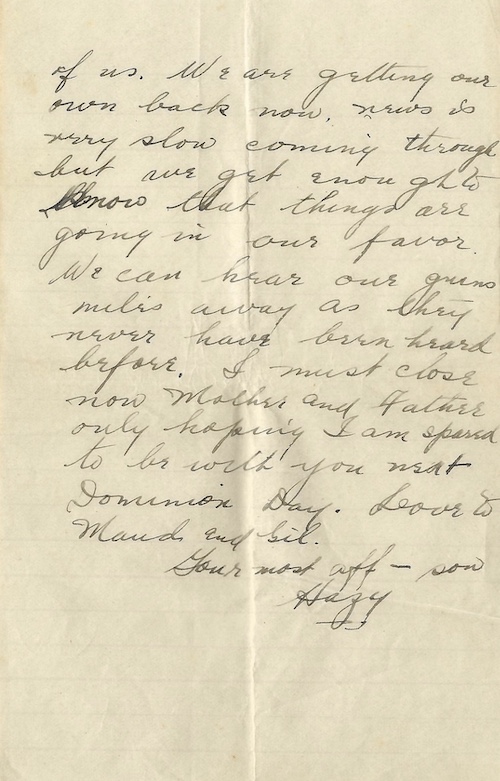 of us. We are getting our
own back now. news is
very slow coming through
but we get enough to
know that things are
going in our favor.
We can hear our guns
miles away as they
never have been heard
before. I must close
now Mother and Father
only hoping I am spared
to be with you next
Dominion Day. Love to
Maud and Gil.
Your most aff – son
Hazy